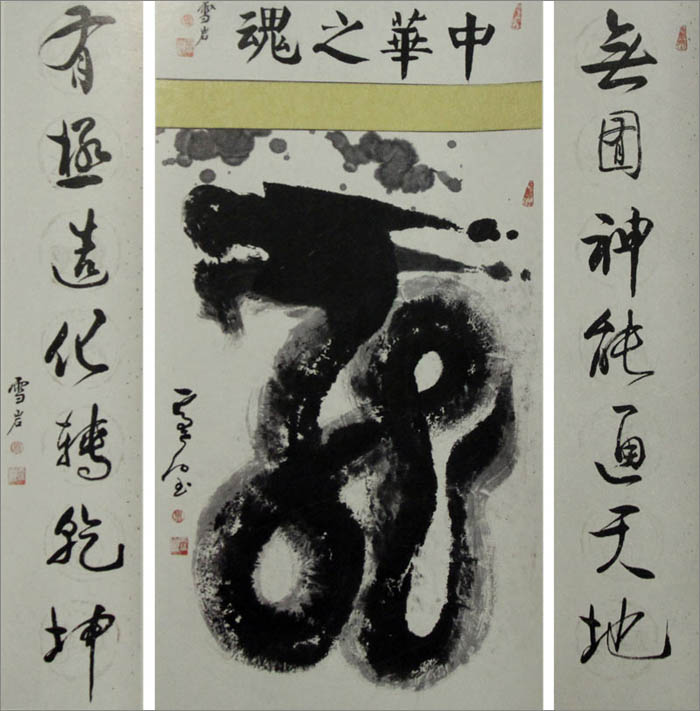 中華之魂
雪岩
無囿神能通天地
有極造化轉乾坤
雪岩